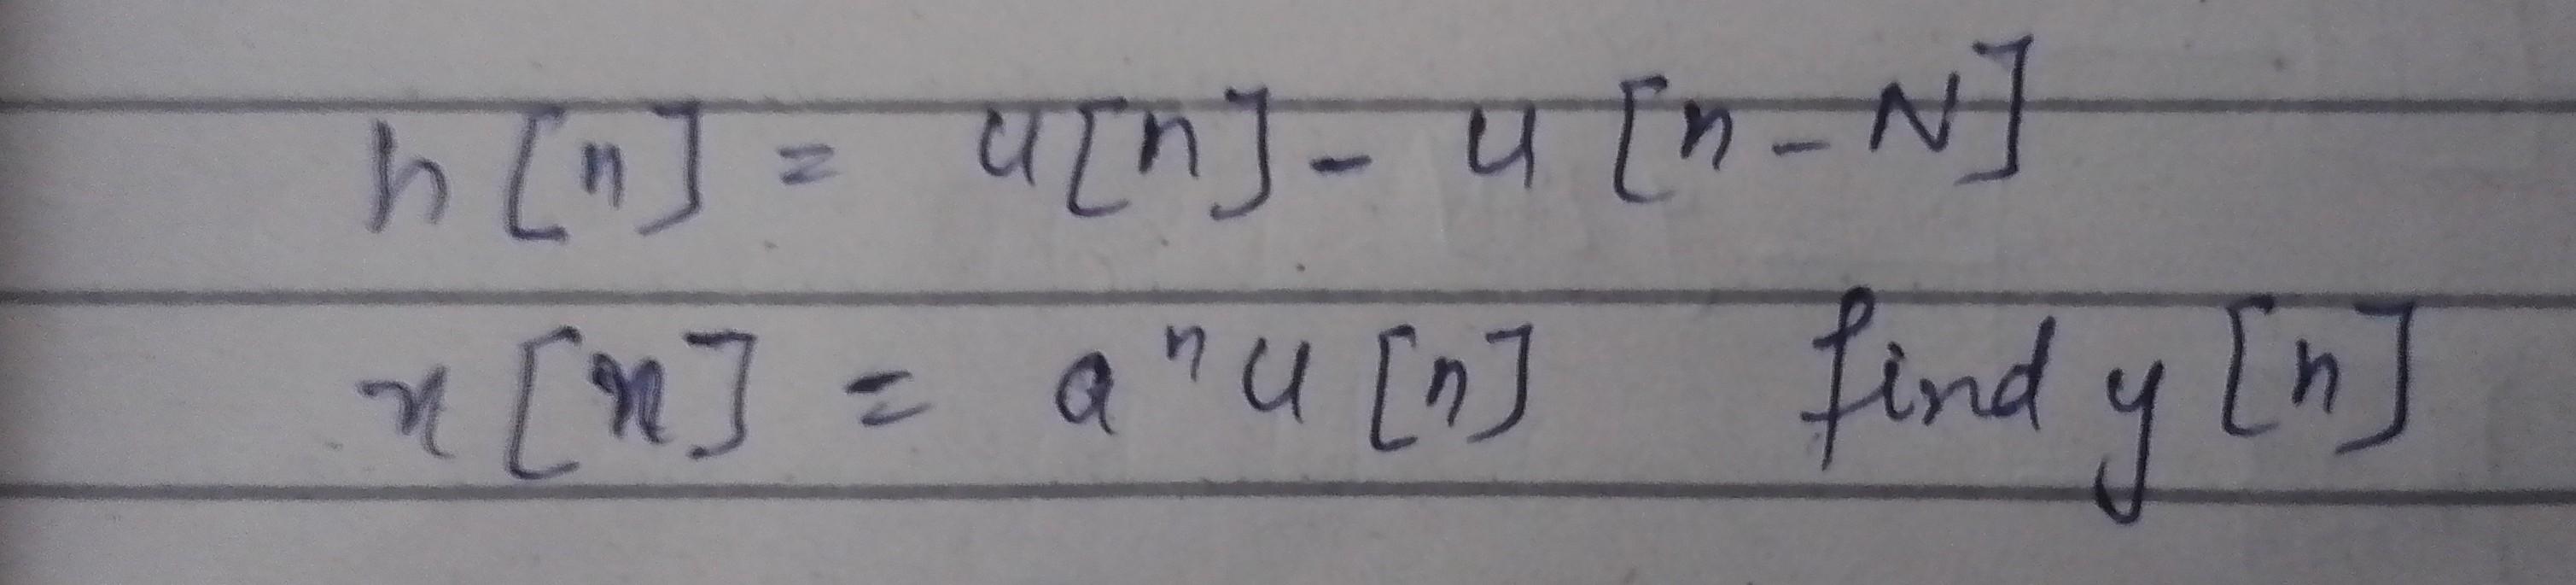 h[n] = u[n] - u[n-N]
x[n] = aⁿu[n] find y[n]